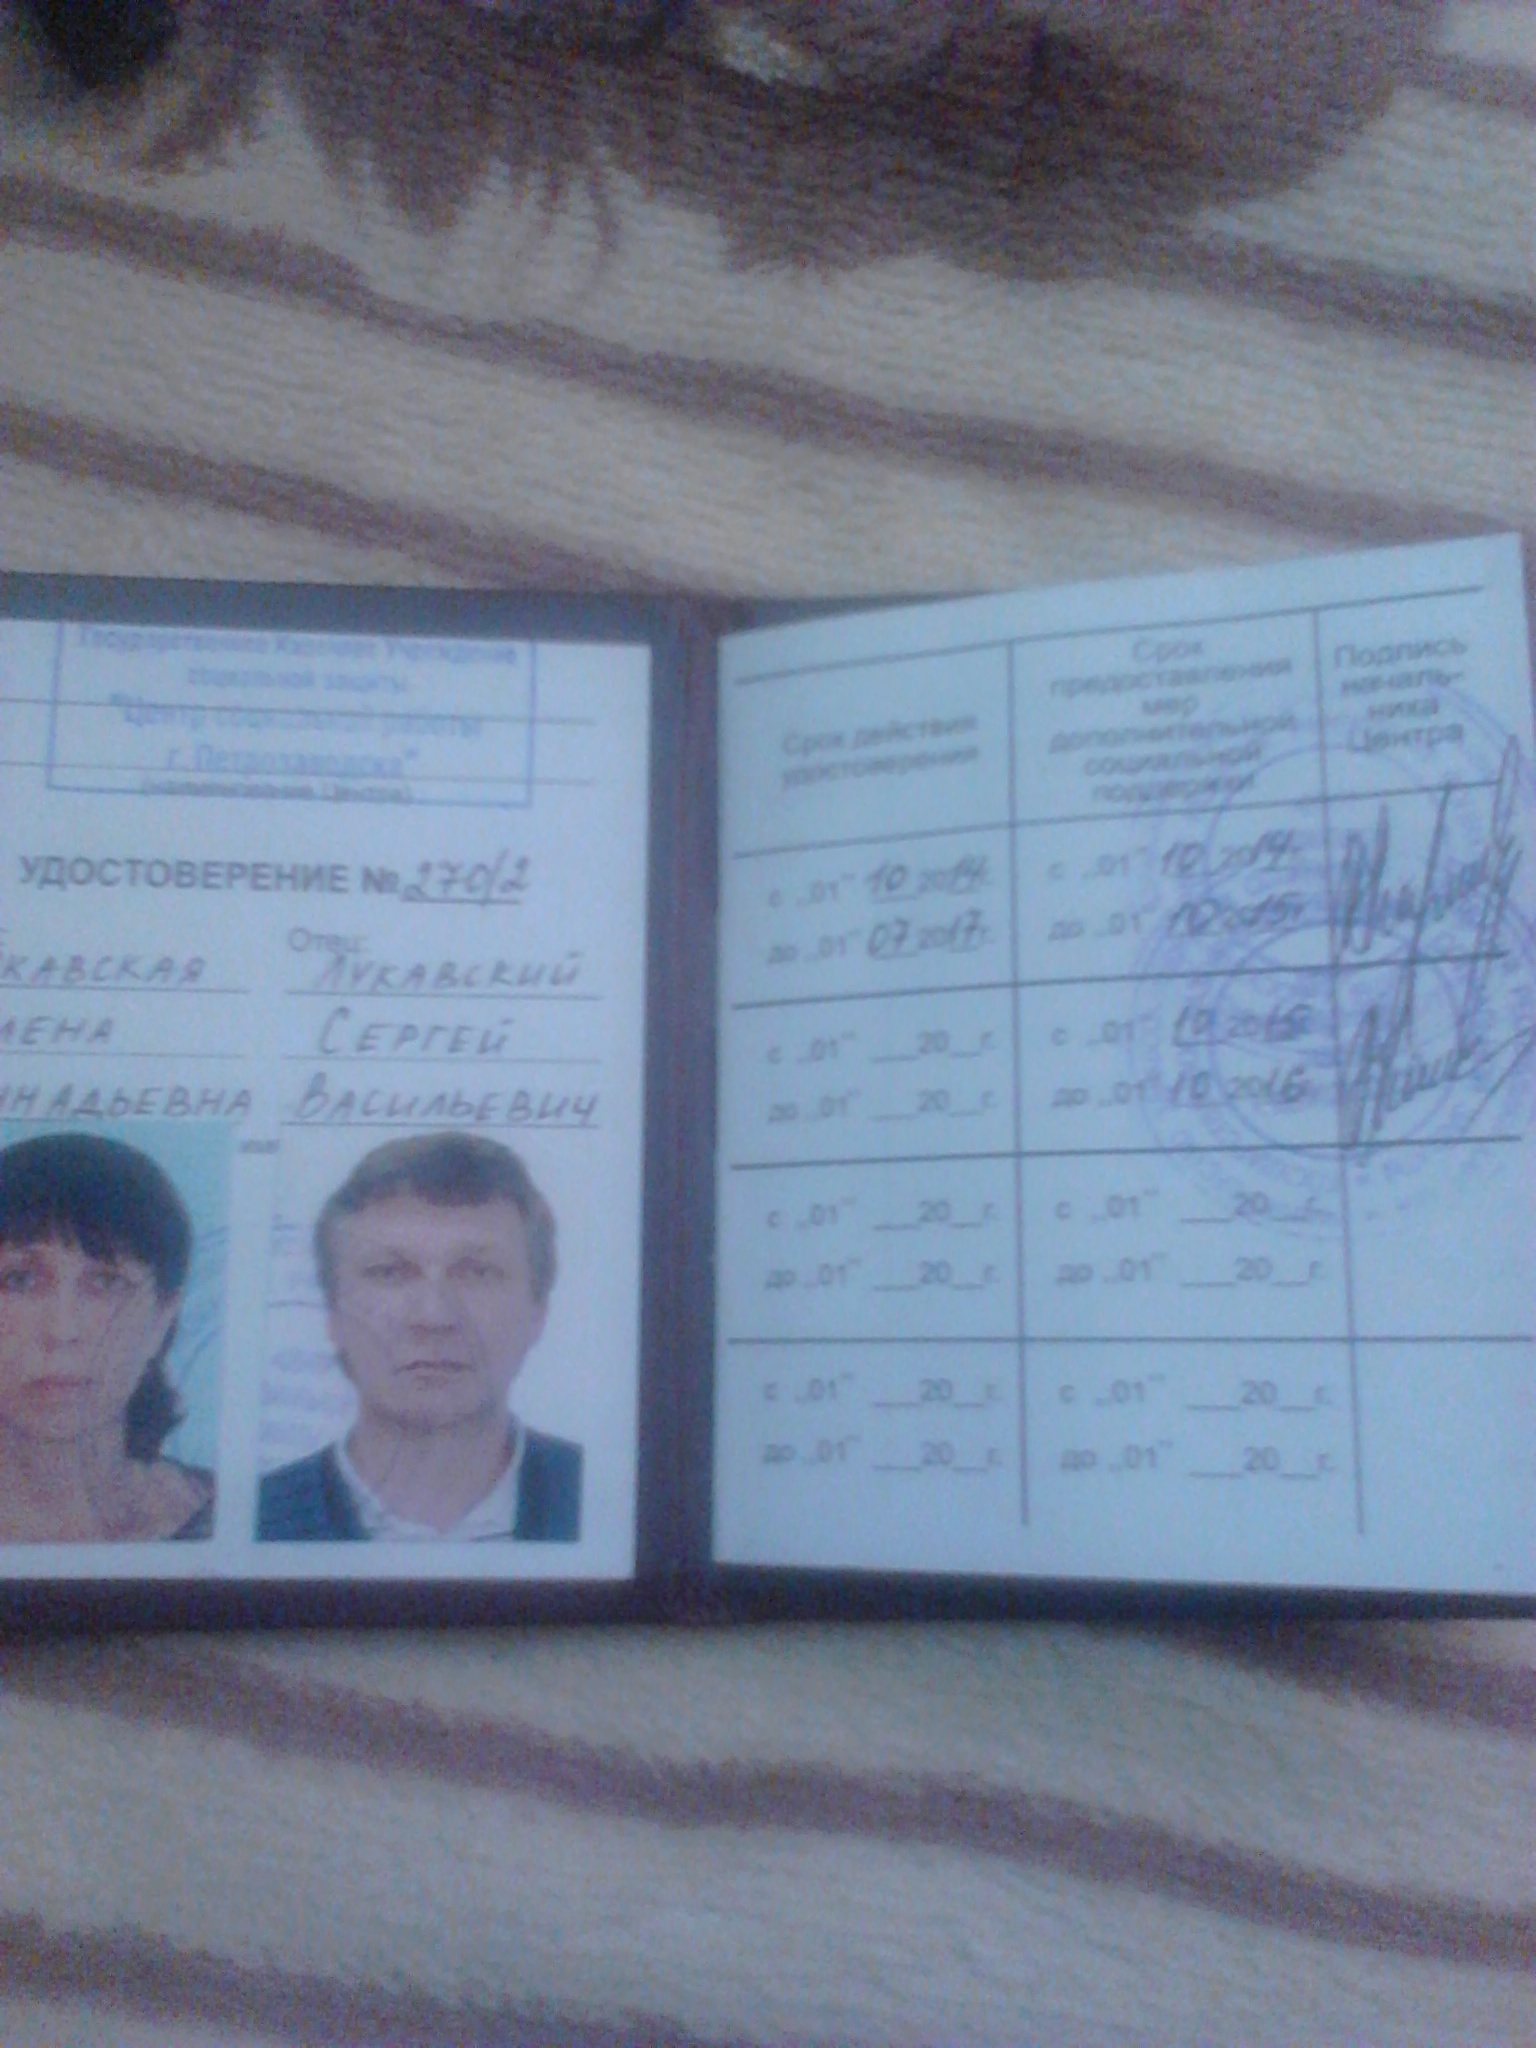 Государственное Казенное Учреждение
социальной защиты
"Центр социальной работы
г. Петрозаводска"
(наименование Центра)
УДОСТОВЕРЕНИЕ № 270/2
Отец:
КАВСКАЯ ЛУКАВСКИЙ
ЛЕНА СЕРГЕЙ
ННАДЬЕВНА ВАСИЛЬЕВИЧ
Срок действия
удостоверения
Срок
предоставления
мер
дополнительной
социальной
поддержки
Подпись
началь-
ника
Центра
с „01" 10 2014г. с „01" 10 2014г.
до „01" 07 2017г. до „01" 10 2015г.
с „01" ___20__г. с „01" 10 2015
до „01" ___20__г. до „01" 10 2016
с „01" ___20__г. с „01" ___20__г.
до „01" ___20__г. до „01" ___20__г.
с „01" ___20__г. с „01" ___20__г.
до „01" ___20__г. до „01" ___20__г.